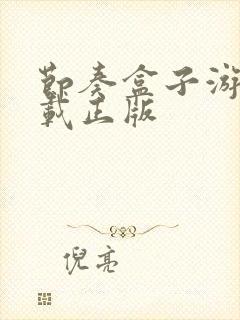 节奏盒子游
载正版
倪亮